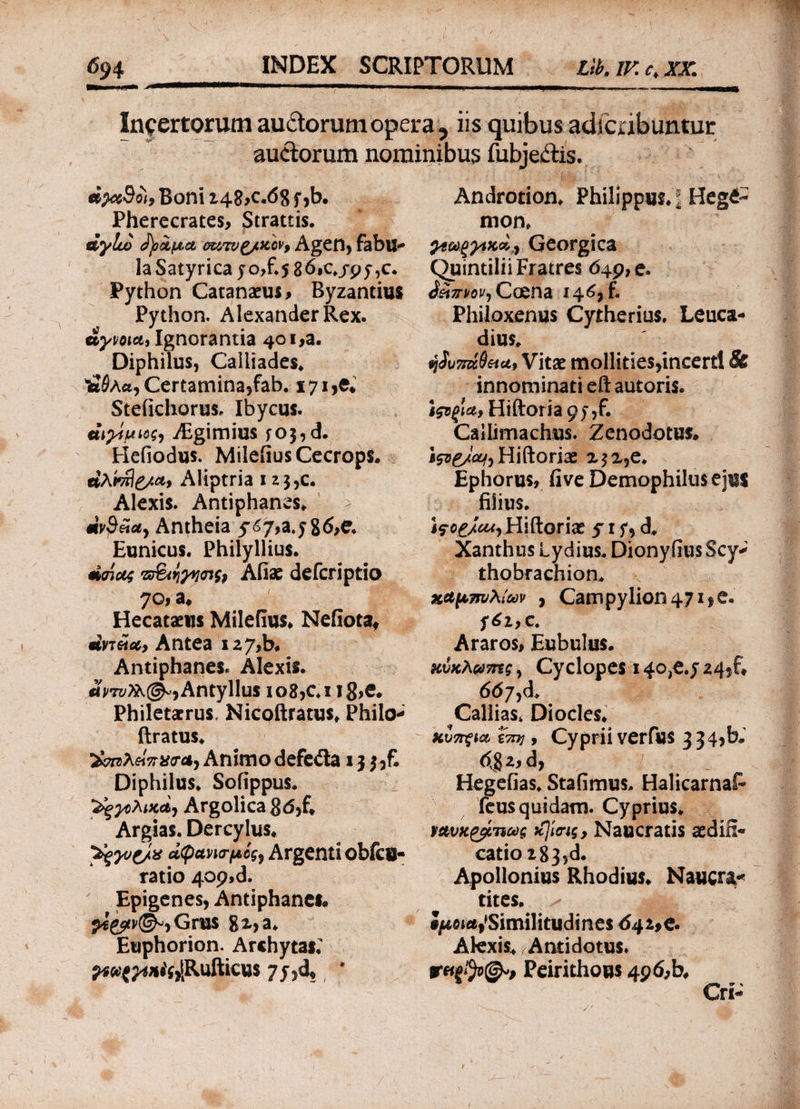 694 INDEX SCRIPTORUM Lib. IV. c. XX.
Incertorum auctorum opera, iis quibus adscribuntur
auctorum nominibus subjectis.
ἀγαθοὶ, Boni 248,c.685,b.
Pherecrates, Strattis.
ἀγὼν δρᾶμα σατυρικὸν, Agen, fabu-
la Satyrica 50,f.586,c.595,c.
Python Catanæus, Byzantius
Python. Alexander Rex.
ἄγνοια, Ignorantia 401,a.
Diphilus, Calliades.
ἆθλα, Certamina,fab. 171,e.
Stesichorus. Ibycus.
αἰγίμιος, Ægimius 503, d.
Hesiodus. Milesius Cecrops.
ἀλείπτρια, Aliptria 123,c.
Alexis. Antiphanes.
ἄνθεια, Antheia 567,a.586,e.
Eunicus. Philyllius.
ἀσίας περιήγησις, Asiæ descriptio
70, a.
Hecatæus Milesius. Nesiota,
ἀντεία, Antea 127,b.
Antiphanes. Alexis.
ἄντυλλος, Antyllus 108,c.118,e.
Philetærus. Nicostratus, Philo-
stratus.
ἀπολείπουσα, Animo defecta 133,f.
Diphilus. Sosippus.
ἀργολικὰ, Argolica 86,f.
Argias. Dercylus.
ἀργυρίου ἀφανισμὸς, Argenti obscu-
ratio 409,d.
Epigenes, Antiphanes.
γέρανος, Grus 82,a.
Euphorion. Archytas.
γεωργικὸς, Rusticus 75,d.
Androtion. Philippus. Hege-
mon.
γεωργικὰ, Georgica
Quintilii Fratres 649, e.
δεῖπνον, Cœna 146, f.
Philoxenus Cytherius. Leuca-
dius.
ἡδυπάθεια, Vitæ mollities, incerti &
innominati est autoris.
ἱστορία, Historia 95,f.
Callimachus. Zenodotus.
ἱστορίαι, Historiæ 232,e.
Ephorus, sive Demophilus ejus
filius.
ἱστορίαι, Historiæ 515, d.
Xanthus Lydius. Dionysius Scy-
thobrachion.
καμπυλίων , Campylion 471, e.
562, c.
Araros, Eubulus.
κύκλωπες, Cyclopes 140,e.524,f.
667,d.
Callias. Diocles.
κύπρια ἔπη , Cyprii versus 334,b.
682, d,
Hegesias. Stasimus. Halicarnas-
seus quidam. Cyprius.
ναυκράτεως κτίσις, Naucratis ædifi-
catio 283,d.
Apollonius Rhodius. Naucra-
tites.
ὅμοια, Similitudines 642, e.
Alexis. Antidotus.
πειρίθοος, Peirithous 496,b.
Cri-